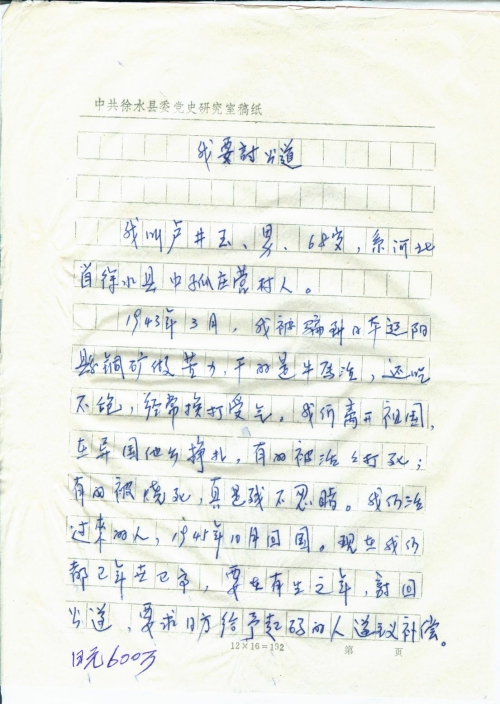 中共徐水县委党史研究室稿纸
我要討公道
我叫卢井玉、男、68岁,系河北
省徐水县中孤庄营村人。
1943年3月,我被骗到日本
县铜矿做苦力,干的是牛馬活,还吃
不饱,经常挨打受气。我们离开祖国,
在异国他乡挣扎,有的被活活打死;
有的被烧死,真是残不忍睹。我们活
过来的人,1945年10月回国。现在我们
都已年去已高,要在有生之年,討回
公道,要求日方给予起码的人道主义补偿。
日元600万
12×16=192
第 页